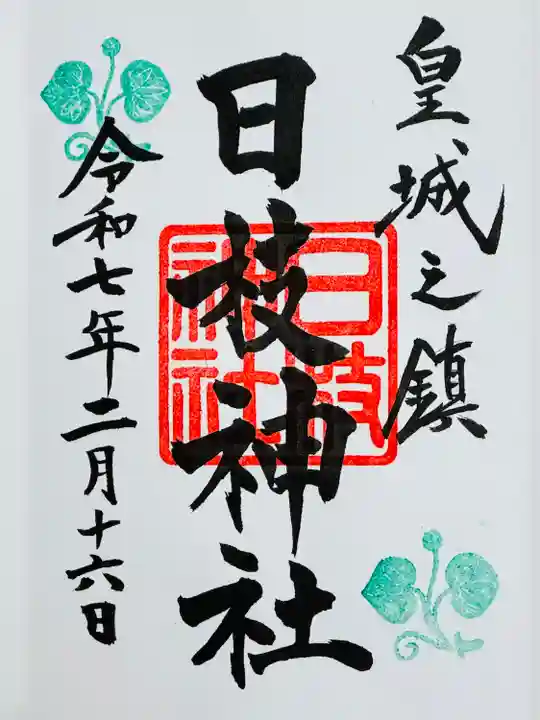 皇城之鎮
日枝神社
日枝
神社
令和七年二月十六日